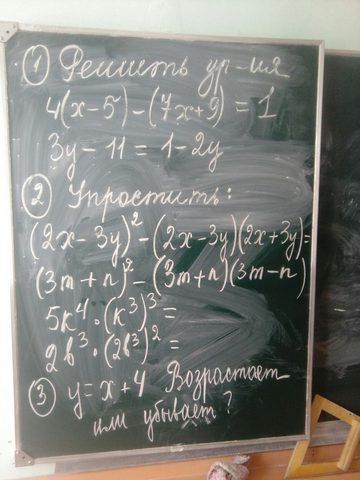 ① Решить ур-ия
4(x-5)-(7x+9)=1
3y-11=1-2y
② Упростить:
(2x-3y)²-(2x-3y)(2x+3y)=
(3m+n)²-(3m+n)(3m-n)
5k⁴·(k³)³=
2b³·(2b³)²=
③ y=x+4 Возрастает
или убывает?